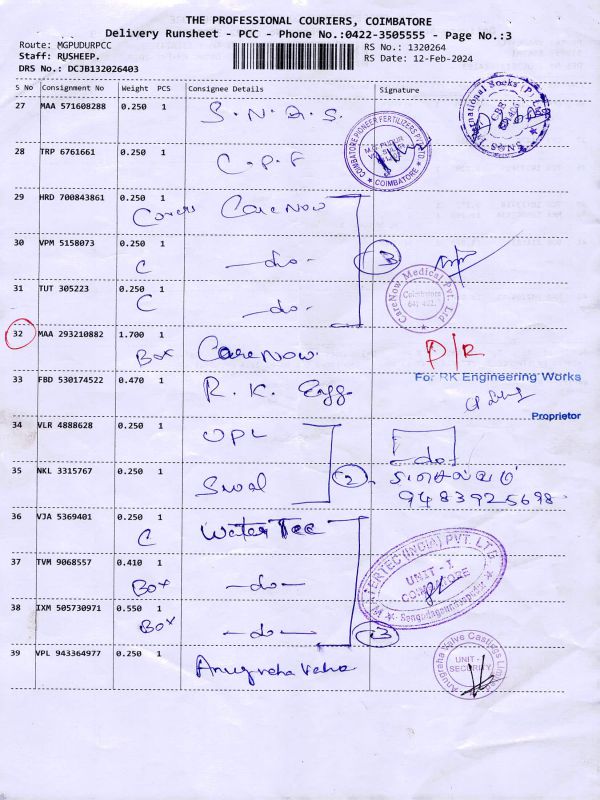 THE PROFESSIONAL COURIERS, COIMBATORE
Delivery Runsheet - PCC - Phone No.:0422-3505555 - Page No.:3
Route: MGPUDURPCC
RS No.: 1320264
Staff: RUSHEEP.
RS Date: 12-Feb-2024
DRS No.: DCJB132026403
S No Consignment No Weight PCS Consignee Details Signature
27 MAA 571608288 0.250 1 S.N.Q.S.
International Socks (P) Ltd
SNQS
28 TRP 6761661 0.250 1 C.P.F
COIMBATORE PIONEER FERTILIZERS PVT LTD
COIMBATORE
29 HRD 700843861 0.250 1 Cover CareNow
30 VPM 5158073 0.250 1 C -do- 3
31 TUT 305223 0.250 1 C -do-
CareNow Medical Pvt. Ltd
Coimbatore
32 MAA 293210882 1.700 1 Box CareNow. D/R
33 FBD 530174522 0.470 1 R. K. Engg.
For RK Engineering Works
Proprietor
34 VLR 4888628 0.250 1 UPL -do-
35 NKL 3315767 0.250 1 2
9483925698
36 VJA 5369401 0.250 1 C Water Tec
37 TVM 9068557 0.410 1 Box -do-
WATERTEC (INDIA) PVT. LTD
UNIT - I
COIMBATORE
38 IXM 505730971 0.550 1 Box -do- 3
39 VPL 943364977 0.250 1 Anugraha Valve
Anugraha Valve Castings Limited
UNIT - I
SECURITY